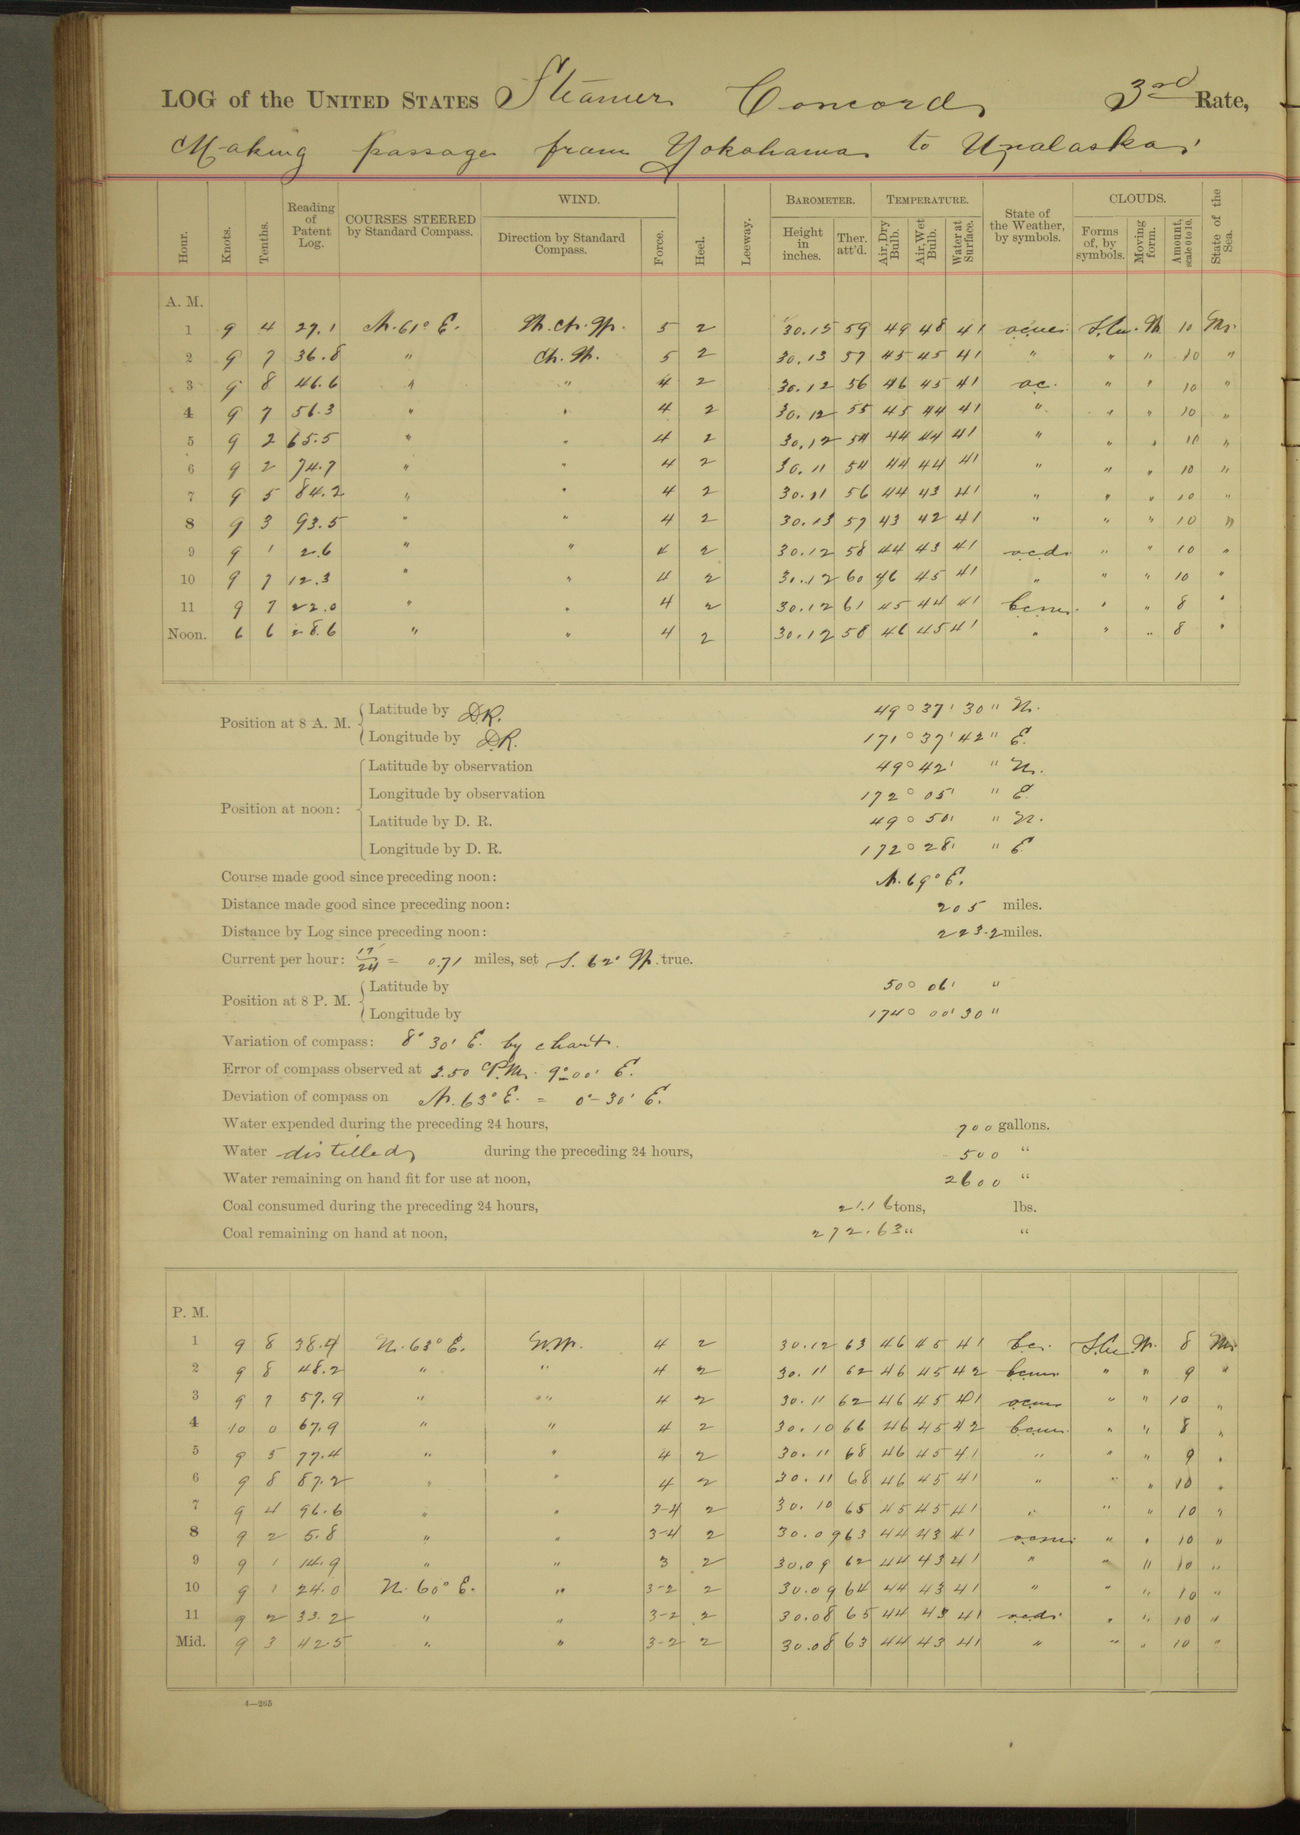 LOG of the UNITED STATES Steamer Concord 3rd Rate,
Making passage from Yokohama to Unalaska
Hour. Knots. Tenths. Reading of Patent Log. COURSES STEERED by Standard Compass. WIND. Direction by Standard Compass. Force. Heel. Leeway. BAROMETER. Height in inches. Ther. att'd. TEMPERATURE. Air, Dry Bulb. Air, Wet Bulb. Water at Surface. State of the Weather, by symbols. CLOUDS. Forms of, by symbols. Moving form. Amount, scale 0 to 10. State of the Sea.
A. M.
1 9 4 27.1 N. 61° E. 5 2 30.15 59 49 48 41 10
2 9 7 36.8 " 5 2 30.13 57 45 45 41 " " " 10 "
3 9 8 46.6 " " 4 2 30.12 56 46 45 41 oc. " " 10 "
4 9 7 56.3 " " 4 2 30.12 55 45 44 41 " " " 10 "
5 9 2 65.5 " " 4 2 30.12 54 44 44 41 " " " 10 "
6 9 2 74.7 " " 4 2 30.11 54 44 44 41 " " " 10 "
7 9 5 84.2 " " 4 2 30.11 56 44 43 41 " " " 10 "
8 9 3 93.5 " " 4 2 30.13 57 43 42 41 " " " 10 "
9 9 1 2.6 " " 4 2 30.12 58 44 43 41 ocd. " " 10 "
10 9 7 12.3 " " 4 2 30.12 60 46 45 41 " " " 10 "
11 9 7 22.0 " " 4 2 30.12 61 45 44 41 bcm. " " 8 "
Noon. 6 6 28.6 " " 4 2 30.12 58 46 45 41 " " " 8 "
Position at 8 A. M. Latitude by D.R. 49° 37' 30" N.
Longitude by D.R. 171° 37' 42" E.
Position at noon: Latitude by observation 49° 42' " N.
Longitude by observation 172° 05' " E.
Latitude by D. R. 49° 50' " N.
Longitude by D. R. 172° 28' " E.
Course made good since preceding noon: N. 69° E.
Distance made good since preceding noon: 205 miles.
Distance by Log since preceding noon: 223.2 miles.
Current per hour: 17/24 = 0.71 miles, set S. 62° W. true.
Position at 8 P. M. Latitude by 50° 06' "
Longitude by 174° 00' 30"
Variation of compass: 8° 30' E. by chart.
Error of compass observed at 3.50 P.M. 9° 00' E.
Deviation of compass on N. 63° E. = 0°-30' E.
Water expended during the preceding 24 hours, 700 gallons.
Water distilled during the preceding 24 hours, 500 "
Water remaining on hand fit for use at noon, 2600 "
Coal consumed during the preceding 24 hours, 21.16 tons, lbs.
Coal remaining on hand at noon, 272.63 " "
P. M.
1 9 8 38.4 N. 63° E. 4 2 30.12 63 46 45 41 bc. 8
2 9 8 48.2 " " 4 2 30.11 62 46 45 42 bcm. " " 9 "
3 9 7 57.9 " " 4 2 30.11 62 46 45 41 ocm " " 10 "
4 10 0 67.9 " " 4 2 30.10 66 46 45 42 bcm. " " 8 "
5 9 5 77.4 " " 4 2 30.11 68 46 45 41 " " " 9 "
6 9 8 87.2 " " 4 2 30.11 68 46 45 41 " " " 10 "
7 9 4 96.6 " " 3-4 2 30.10 65 45 45 41 " " " 10 "
8 9 2 5.8 " " 3-4 2 30.09 63 44 43 41 ocm. " " 10 "
9 9 1 14.9 " " 3 2 30.09 62 44 43 41 " " " 10 "
10 9 1 24.0 N. 60° E. " 3-2 2 30.09 64 44 43 41 " " " 10 "
11 9 2 33.2 " " 3-2 2 30.08 65 44 43 41 ocd. " " 10 "
Mid. 9 3 42.5 " " 3-2 2 30.08 63 44 43 41 " " " 10 "
4—265